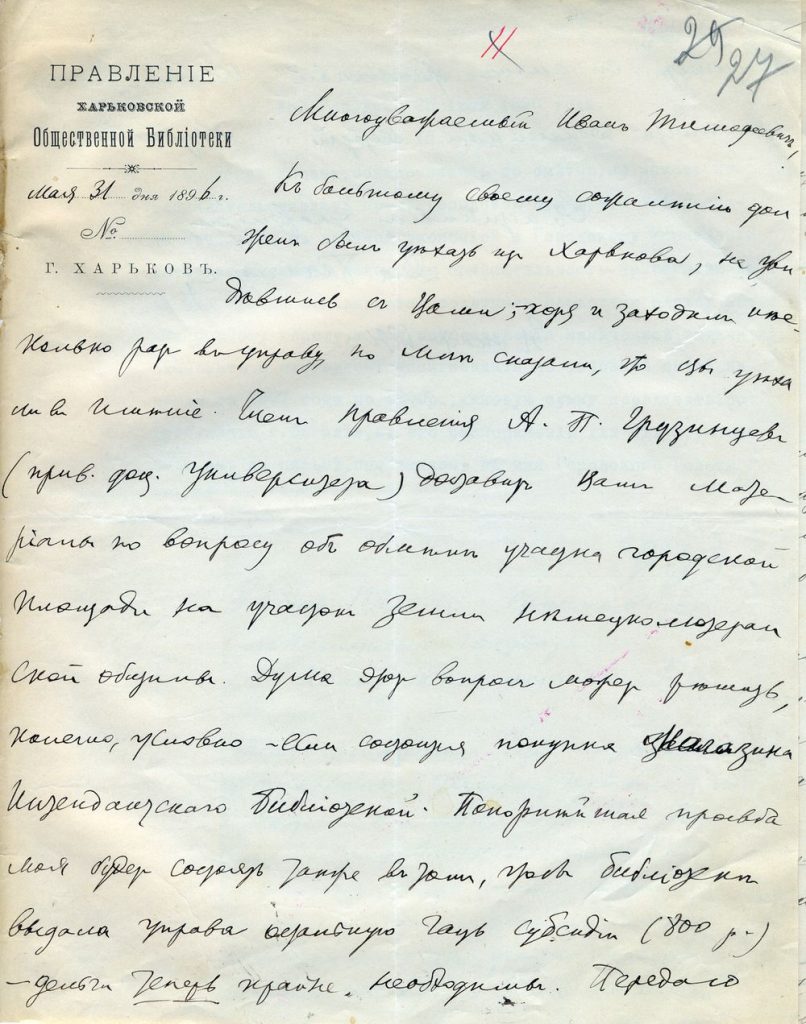 11
25
27
ПРАВЛЕНІЕ
ХАРЬКОВСКОЙ
Общественной Библіотеки
Мая 31 дня 1896 г.
№
Г. ХАРЬКОВЪ.
Многоуважаемый Иванъ Тимофеевичъ,
Къ большому своему сожалѣнію дол-
женъ былъ уѣхать изъ Харькова, не уви
дѣвшись съ Вами, хотя и заходилъ нѣс-
колько разъ въ управу, но мнѣ сказали, что Вы уѣха
ли въ имѣніе. Членъ правленія А. П. Грузинцевъ
(прив. доц. Университета) доставитъ Вамъ мате
ріалы по вопросу объ обмѣнѣ участка городской
площади на участокъ земли нѣмецколютеран
ской общины. Дума этотъ вопросъ можетъ рѣшить,
конечно, условно – если состоится покупка магазина
Интендантскаго библіотекой. Покорнѣйшая просьба
моя будетъ состоять также въ томъ, чтобы библіотекѣ
выдала управа остатную часть субсидіи (800 р.)
– деньги теперь крайне необходимы. Передаю